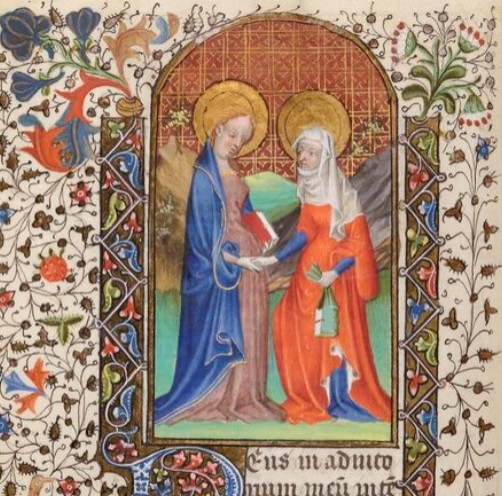 DEus in adiuto
rium meū inte